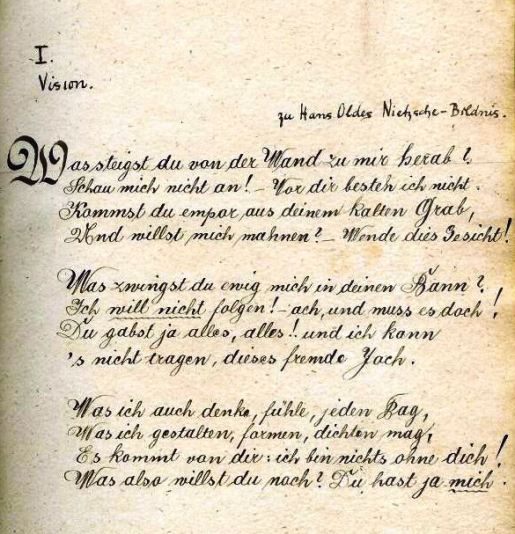 I.
Vision.
zu Hans Oldes Nietzsche-Bildnis.
Was steigst du von der Wand zu mir herab?
Schau mich nicht an! – Vor dir besteh ich nicht.
Kommst du empor aus deinem kalten Grab,
Und willst mich mahnen? – Wende dies Gesicht!
Was zwingst du ewig mich in deinen Bann?
Ich will nicht folgen! – ach, und muss es doch!
Du gabst ja alles, alles! und ich kann
's nicht tragen, dieses fremde Joch.
Was ich auch denke, fühle, jeden Tag,
Was ich gestalten, formen, dichten mag,
Es kommt von dir: ich bin nichts ohne dich!
Was also willst du noch? Du hast ja mich.